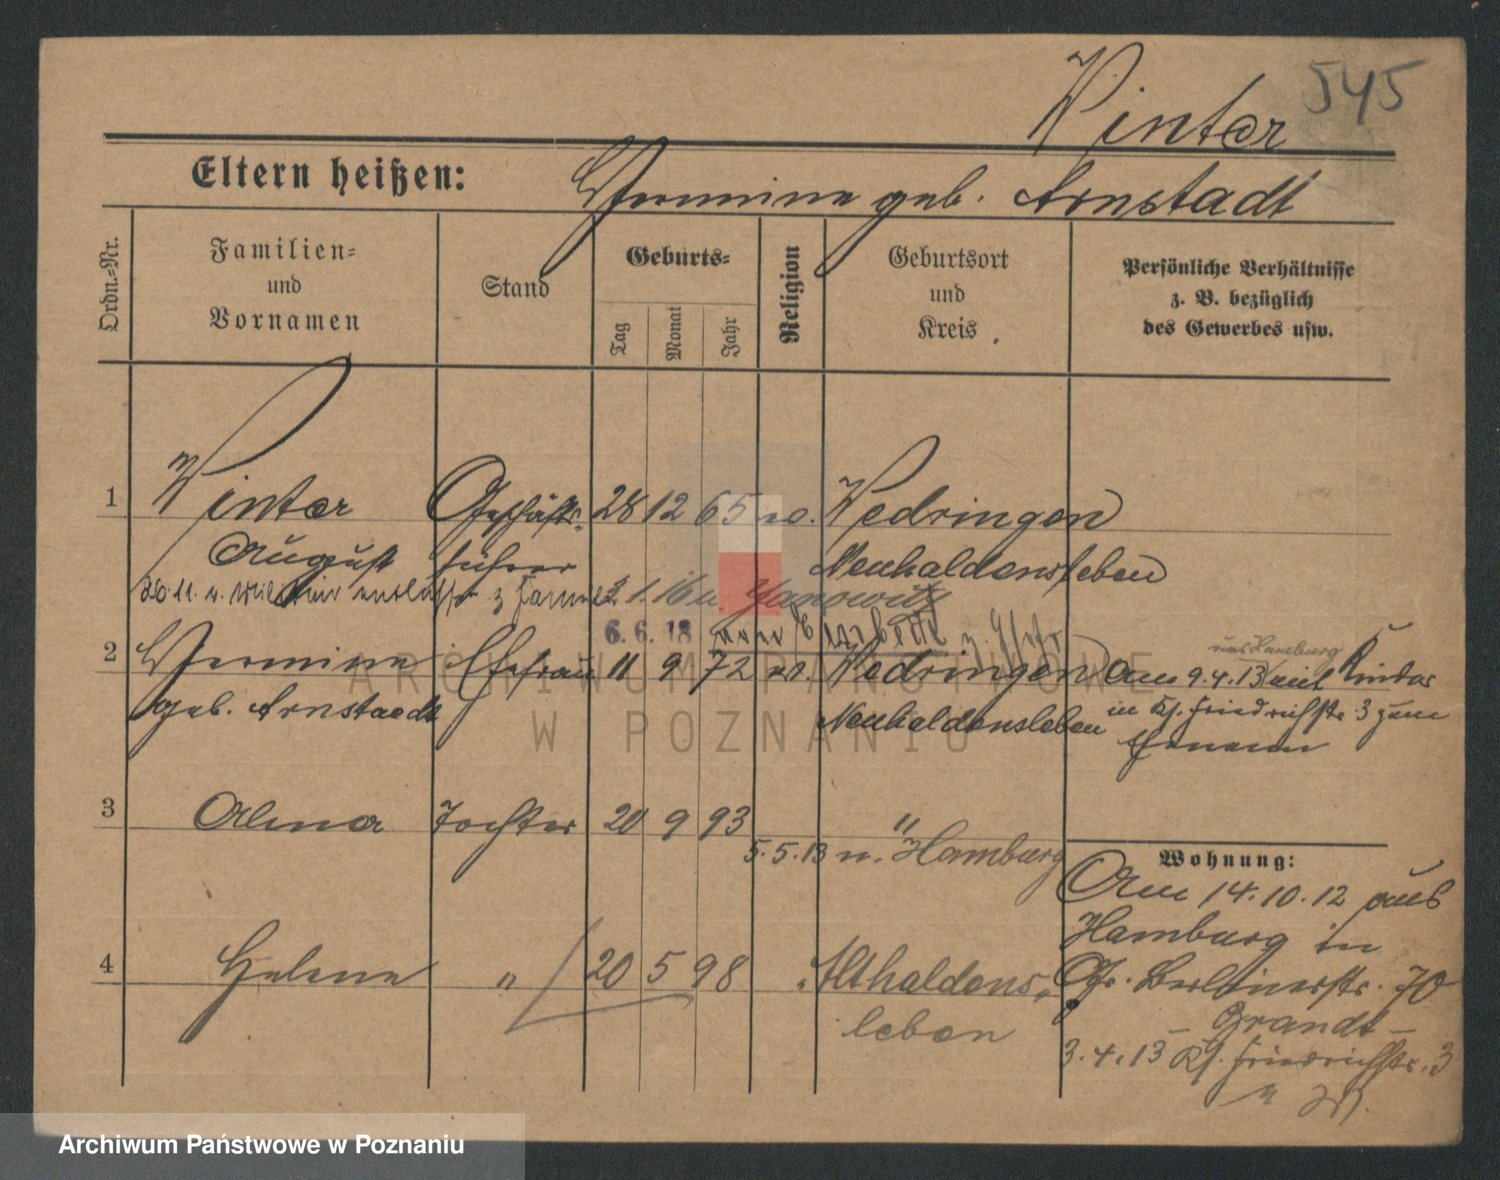 545
Winter
Eltern heißen: Hermine geb. Arnstadt
Ordn.-Nr.
Familien-
und
Vornamen
Stand
Geburts-
Tag
Monat
Jahr
Religion
Geburtsort
und
Kreis
Persönliche Verhältnisse
z. B. bezüglich
des Gewerbes usw.
1 Winter Geschäfts- 28 12 65 ev. Wedringen
August führer Neuhaldensleben
26.11. v. entlassen z. 2.1.16 n. Janowitz
6. 6. 18 nach
2 Hermine Ehefrau 11 9 72 ev. Wedringen
geb. Arnstaedt Neuhaldensleben
aus Hamburg
Am 9.4.13 mit Kinder
in Kl. Friedrichstr. 3 zum
Ehemann
3 Alma Tochter 20 9 93 "
5.5.13 n. Hamburg
4 Helene " 20 5 98 Althaldens-
leben
Wohnung:
Am 14.10.12 aus
Hamburg in
Gr. Berlinerstr. 70
– Brandt –
3.4.13 Kl. Friedrichstr. 3
ARCHIWUM PAŃSTWOWE
W POZNANIU
Archiwum Państwowe w Poznaniu